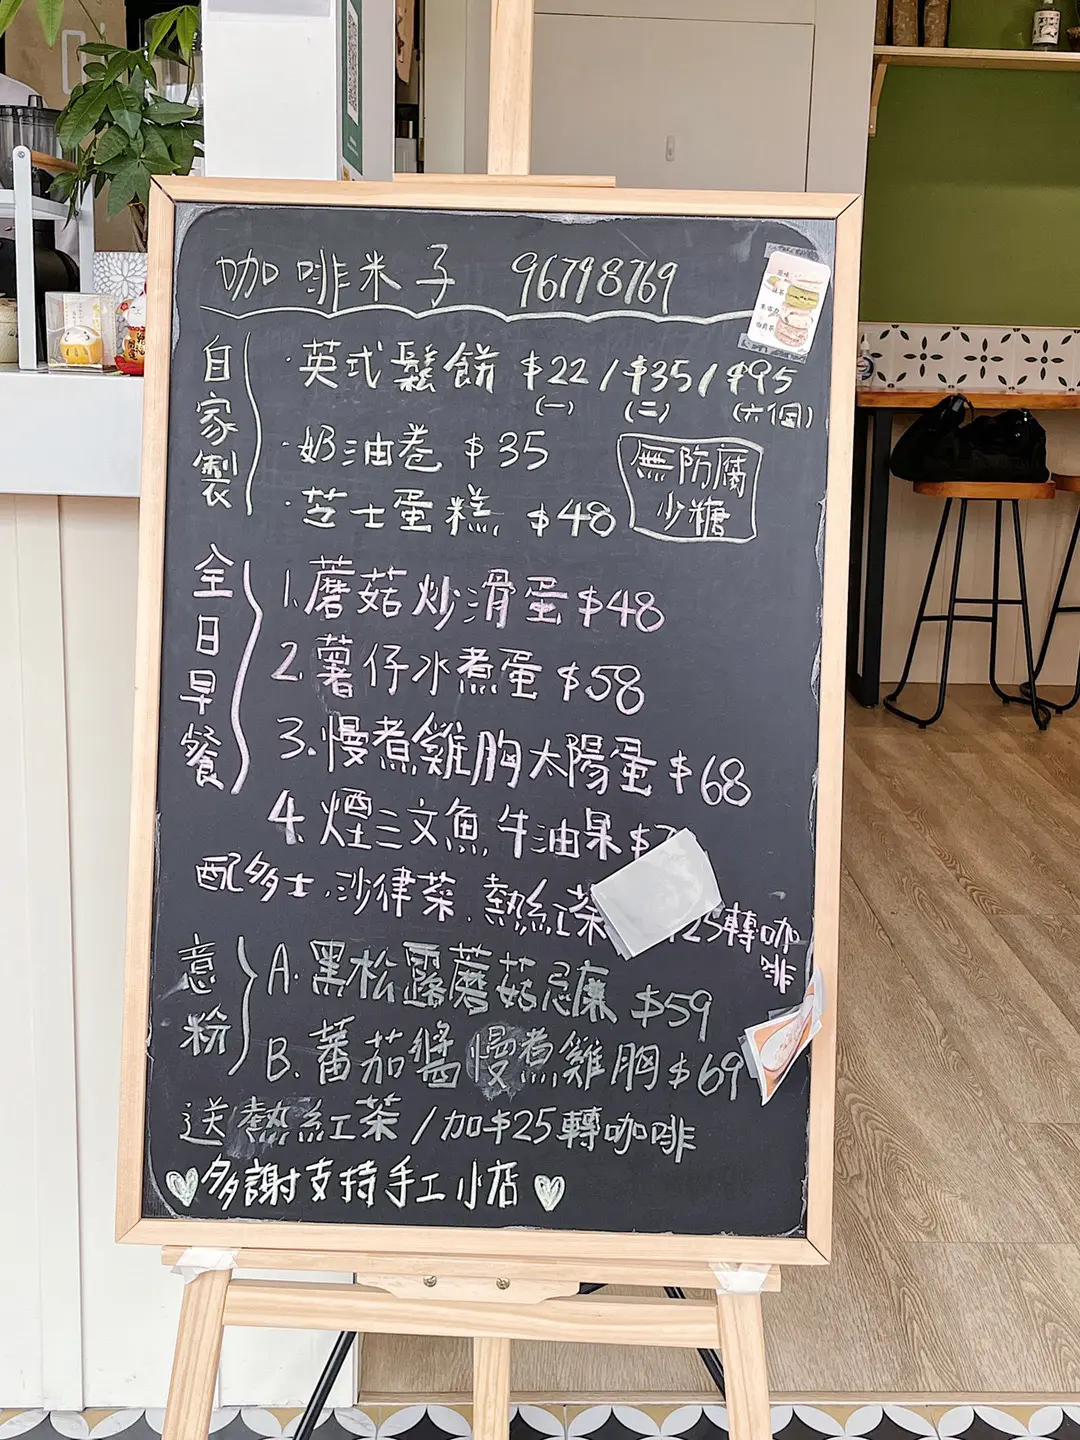 咖啡米子 96798769
自家製
· 英式鬆餅 $22 / $35 / $95
(一) (二) (六個)
· 奶油卷 $35
· 芝士蛋糕 $48
無防腐
少糖
全日早餐
1. 蘑菇炒滑蛋 $48
2. 薯仔水煮蛋 $58
3. 慢煮雞胸太陽蛋 $68
4. 煙三文魚, 牛油果 $
配多士, 沙律菜, 熱紅茶 25轉咖啡
意粉
A. 黑松露蘑菇忌廉 $59
B. 蕃茄醬慢煮雞胸 $69
送熱紅茶 / 加$25轉咖啡
♡多謝支持手工小店♡